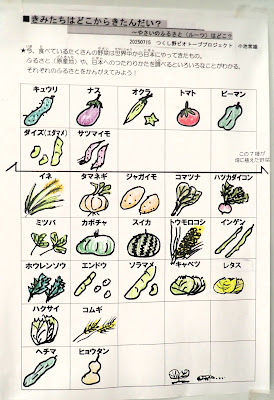 ■きみたちはどこからきたんだい？
～やさいのふるさと（ルーツ）はどこ？
20250705 つくし野ビオトーププロジェクト
★今、食べているたくさんの野菜は世界中から日本にやってきたもの。
ふるさと（原産地）や、日本へのつたわりかたを調べるといろいろなことがわかる。
それぞれのふるさとをかんがえてみよう！
キュウリ ナス オクラ トマト ピーマン
ダイズ（エダマメ） サツマイモ
この7種が
畑に植えた野菜
イネ タマネギ ジャガイモ コマツナ ハツカダイコン
ミツバ カボチャ スイカ トウモロコシ インゲン
ホウレンソウ エンドウ ソラマメ キャベツ レタス
ハクサイ コムギ
ヘチマ ヒョウタン